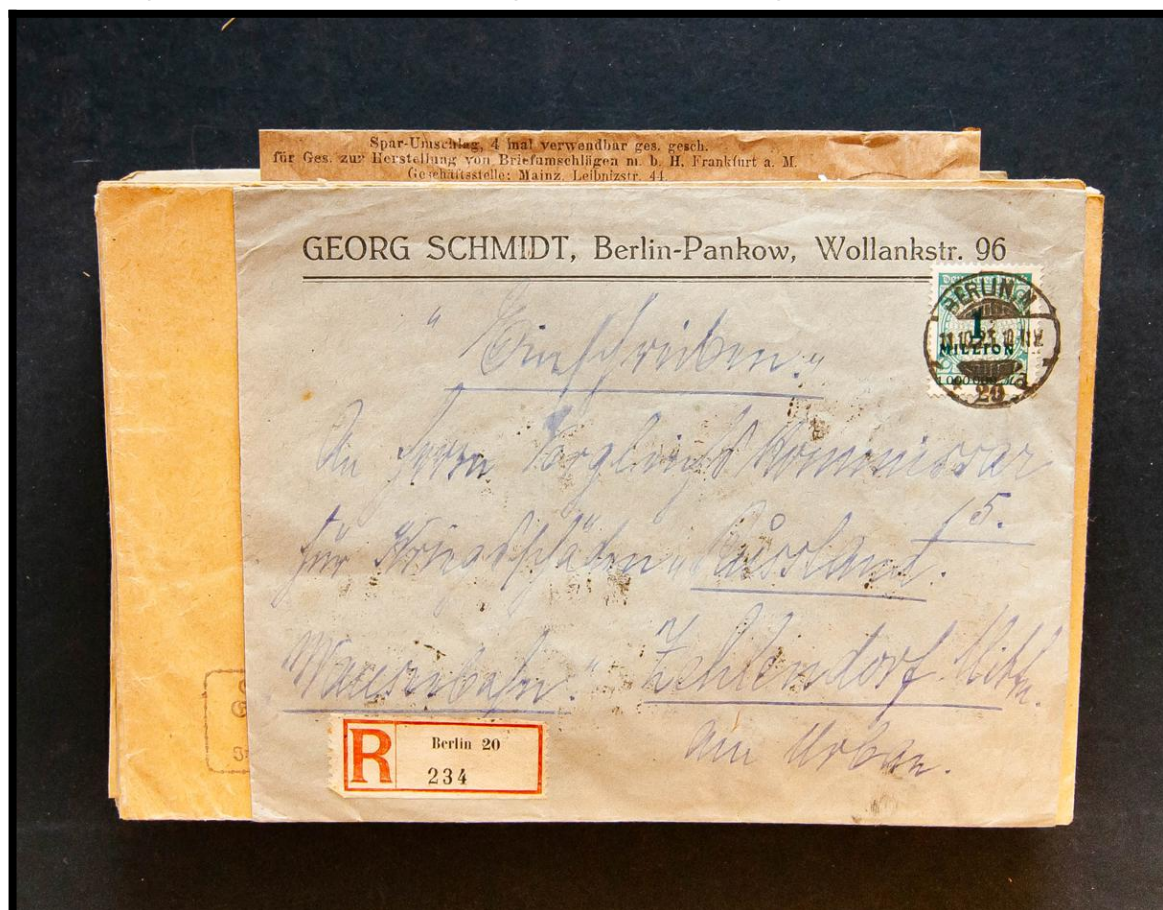 Spar-Umschlag, 4 mal verwendbar ges. gesch.
für Ges. zur Herstellung von Briefumschlägen m. b. H. Frankfurt a. M.
Geschäftsstelle: Mainz, Leibnizstr. 44.
GEORG SCHMIDT, Berlin-Pankow, Wollankstr. 96
BERLIN N
1
11.10.23. 10-11V.
MILLION
20
„Einschreiben."
An Herrn Kommissar
15.
für Kriegsschäden „Russland.
Zehlendorf. Mitte.
am Urban.
R
Berlin 20
234